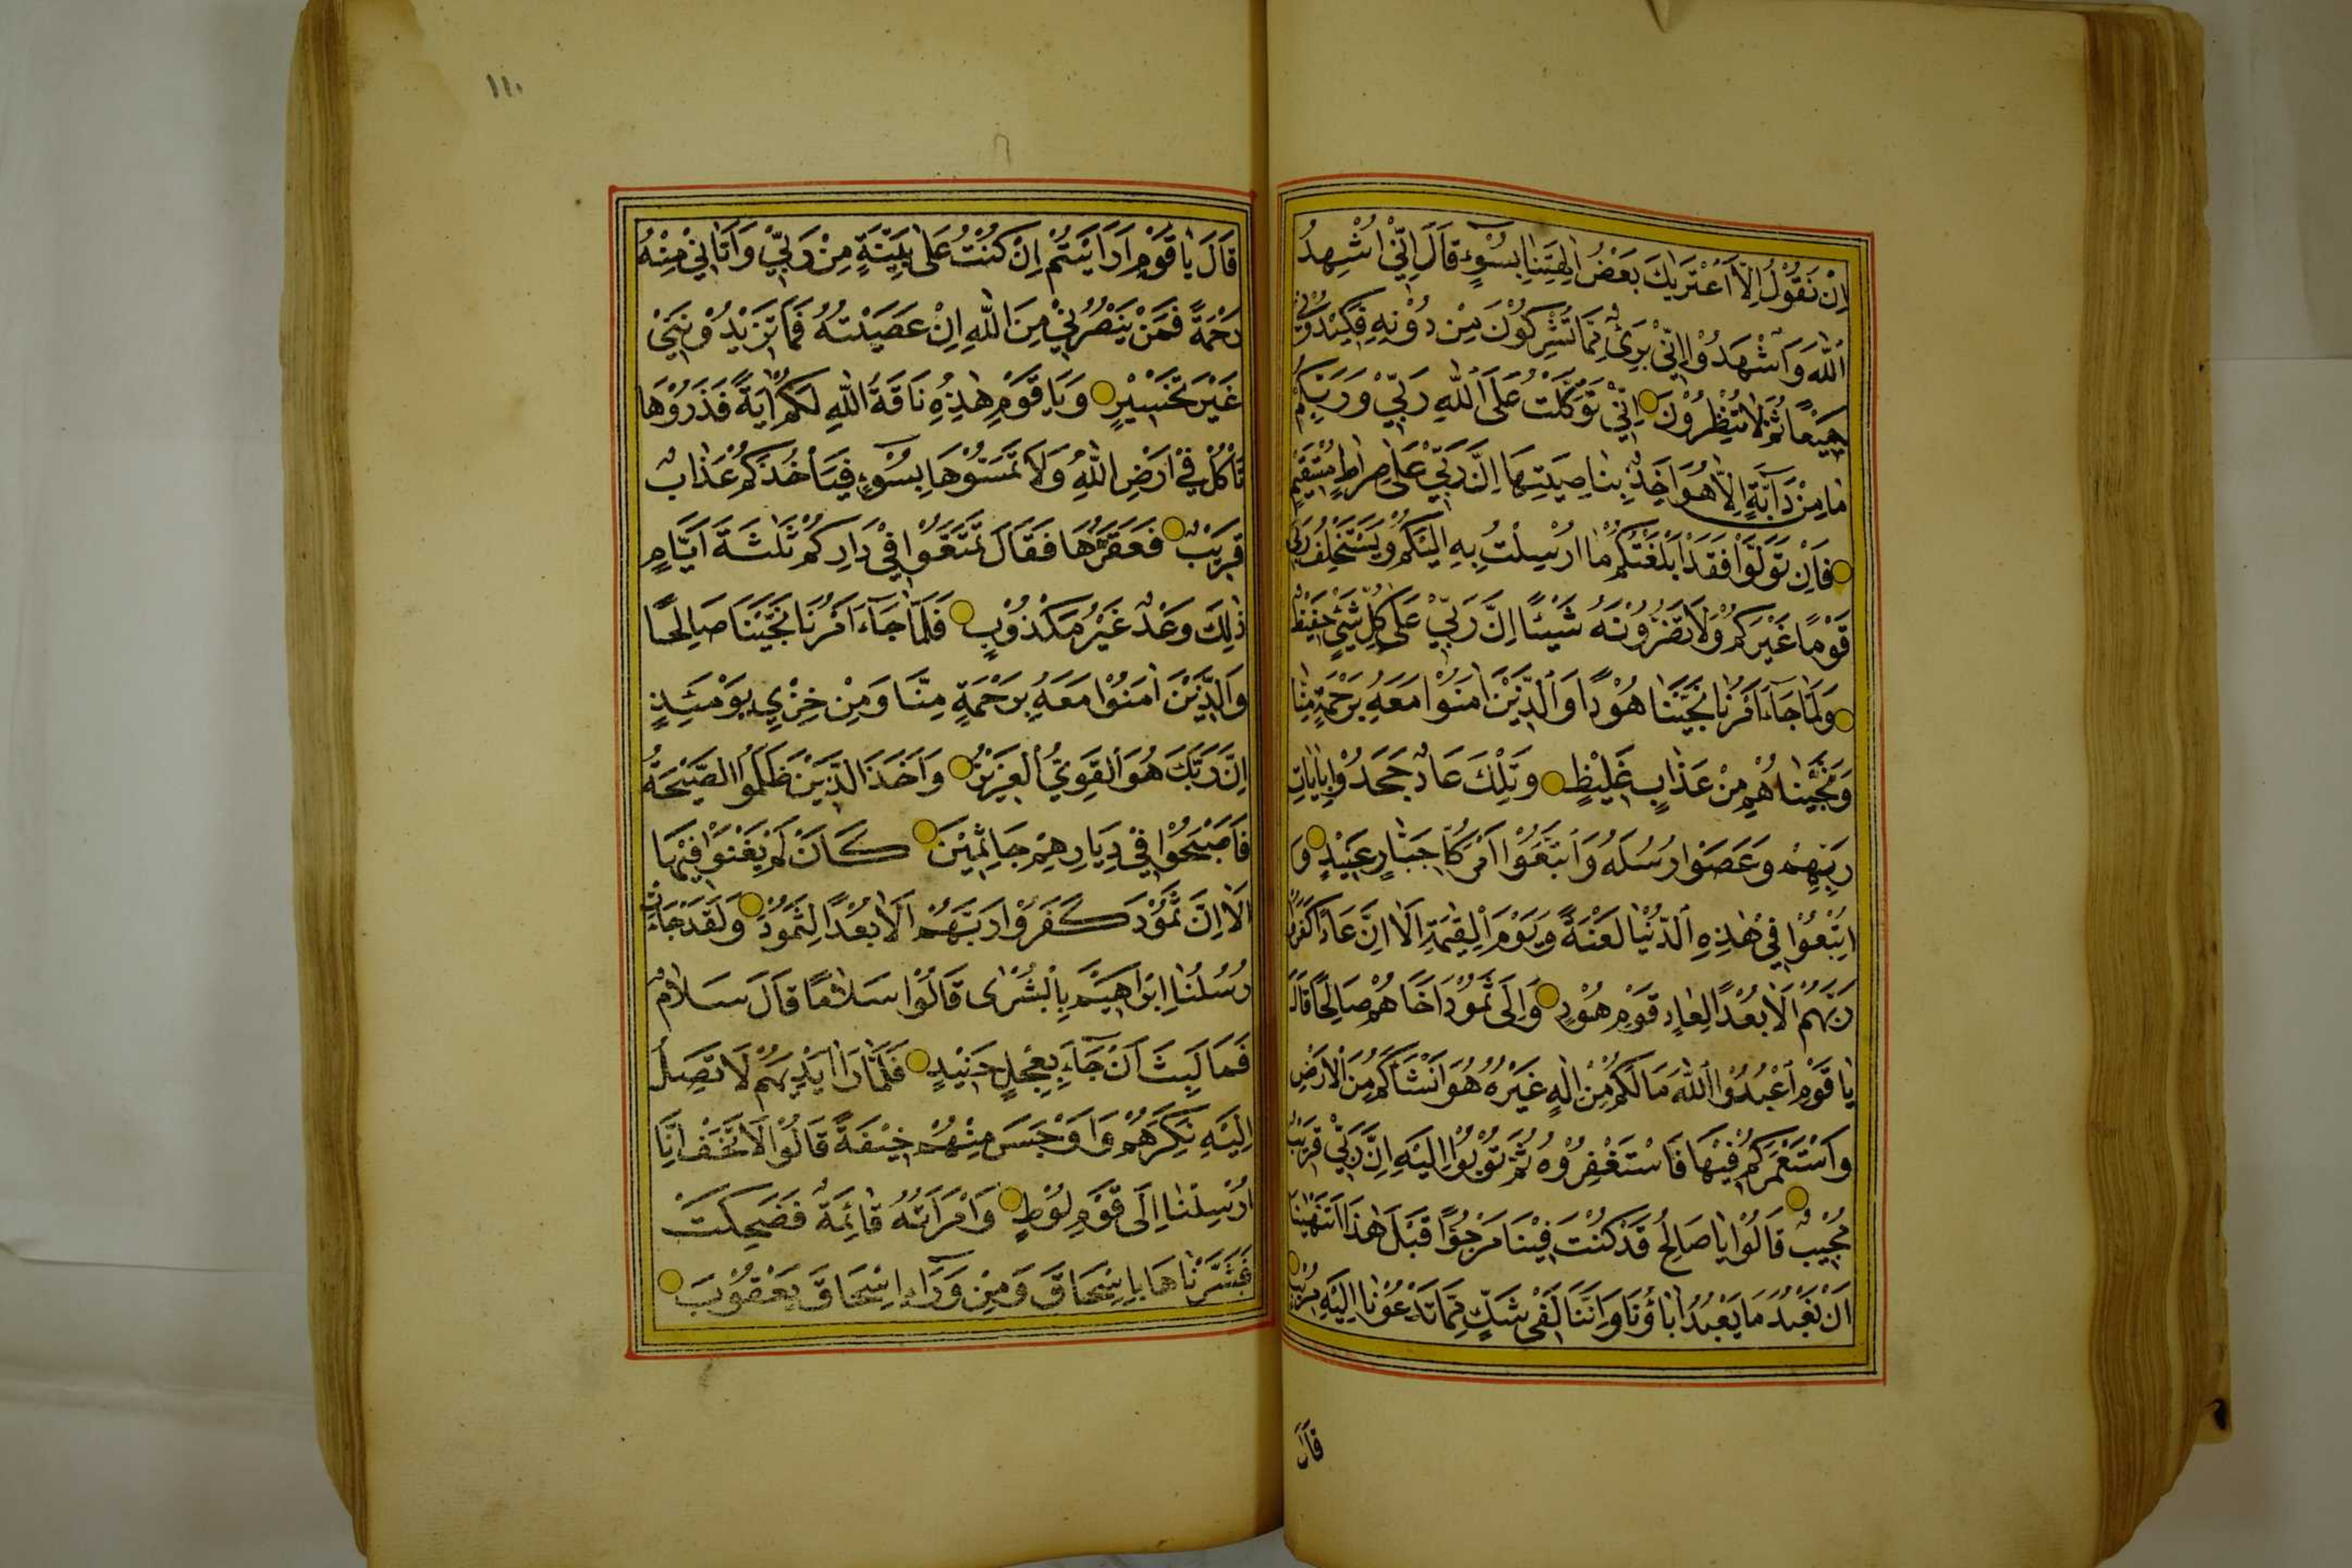 اِنْ نَقُوْلُ اِلَّا اعْتَرٰيكَ بَعْضُ اٰلِهَتِنٰا بِسُوٓءٍ قَالَ اِنّٖي اُشْهِدُ
اللّٰهَ وَاشْهَدُوْا اِنّٖي بَرٖئٌ مِمَّا تُشْرِكُوْنَ مِنْ دُوْنِهِ فَكٖيْدُوْنٖي
جَمٖيْعًا ثُمَّ لَا تُنْظِرُوْنَ اِنّٖي تَوَكَّلْتُ عَلَى اللّٰهِ رَبّٖيْ وَرَبِّكُمْ
مٰا مِنْ دَآبَّةٍ اِلَّا هُوَ اٰخِذٌ بِنٰاصِيَتِهَا اِنَّ رَبّٖيْ عَلٰى صِرٰاطٍ مُسْتَقٖيْمٍ
فَاِنْ تَوَلَّوْا فَقَدْ اَبْلَغْتُكُمْ مٰا اُرْسِلْتُ بِهِ اِلَيْكُمْ وَيَسْتَخْلِفُ رَبّٖي
قَوْمًا غَيْرَكُمْ وَلَا تَضُرُّوْنَهُ شَيْئًا اِنَّ رَبّٖيْ عَلٰى كُلِّ شَيْءٍ حَفٖيْظٌ
وَلَمَّا جَآءَ اَمْرُنٰا نَجَّيْنَا هُوْدًا وَالَّذٖيْنَ اٰمَنُوْا مَعَهُ بِرَحْمَةٍ مِنّٰا
وَنَجَّيْنٰاهُمْ مِنْ عَذٰابٍ غَلٖيْظٍ وَتِلْكَ عَادٌ جَحَدُوْا بِاٰيٰاتِ
رَبِّهِمْ وَعَصَوْا رُسُلَهُ وَاتَّبَعُوْا اَمْرَ كُلِّ جَبّٰارٍ عَنٖيْدٍ وَ
اُتْبِعُوْا فٖيْ هٰذِهِ الدُّنْيٰا لَعْنَةً وَيَوْمَ الْقِيٰمَةِ اَلَا اِنَّ عَادًا كَفَرُوْا
رَبَّهُمْ اَلَا بُعْدًا لِعٰادٍ قَوْمِ هُوْدٍ وَاِلٰى ثَمُوْدَ اَخَاهُمْ صَالِحًا قَالَ
يٰا قَوْمِ اعْبُدُوْا اللّٰهَ مَا لَكُمْ مِنْ اِلٰهٍ غَيْرُهُ هُوَ اَنْشَأَكُمْ مِنَ الْاَرْضِ
وَاسْتَعْمَرَكُمْ فٖيْهَا فَاسْتَغْفِرُوْهُ ثُمَّ تُوْبُوْا اِلَيْهِ اِنَّ رَبّٖيْ قَرٖيْبٌ
مُجٖيْبٌ قَالُوْا يٰا صَالِحُ قَدْ كُنْتَ فٖيْنَا مَرْجُوًّا قَبْلَ هٰذَا اَتَنْهٰينٰا
اَنْ نَعْبُدَ مَا يَعْبُدُ اٰبٰاؤُنَا وَاِنَّنَا لَفٖي شَكٍّ مِمَّا تَدْعُوْنٰا اِلَيْهِ مُرٖيْبٍ
قَالَ
١١٠
قَالَ يٰا قَوْمِ اَرَاَيْتُمْ اِنْ كُنْتُ عَلٰى بَيِّنَةٍ مِنْ رَبّٖيْ وَاٰتٰانٖيْ مِنْهُ
رَحْمَةً فَمَنْ يَنْصُرُنٖيْ مِنَ اللّٰهِ اِنْ عَصَيْتُهُ فَمَا تَزٖيْدُوْنَنٖيْ
غَيْرَ تَخْسٖيْرٍ وَيَا قَوْمِ هٰذِهِ نَاقَةُ اللّٰهِ لَكُمْ اٰيَةً فَذَرُوْهَا
تَأْكُلْ فٖيْ اَرْضِ اللّٰهِ وَلَا تَمَسُّوْهَا بِسُوْٓءٍ فَيَأْخُذَكُمْ عَذٰابٌ
قَرٖيْبٌ فَعَقَرُوْهَا فَقَالَ تَمَتَّعُوْا فٖيْ دَارِكُمْ ثَلٰثَةَ اَيَّامٍ
ذٰلِكَ وَعْدٌ غَيْرُ مَكْذُوْبٍ فَلَمَّا جَآءَ اَمْرُنَا نَجَّيْنَا صَالِحًا
وَالَّذٖيْنَ اٰمَنُوْا مَعَهُ بِرَحْمَةٍ مِنَّا وَمِنْ خِزْيِ يَوْمَئِذٍ
اِنَّ رَبَّكَ هُوَ الْقَوِيُّ الْعَزٖيْزُ وَاَخَذَ الَّذٖيْنَ ظَلَمُوا الصَّيْحَةُ
فَاَصْبَحُوْا فٖيْ دِيَارِهِمْ جَاثِمٖيْنَ كَانَ لَمْ يَغْنَوْا فٖيْهَا
اَلَا اِنَّ ثَمُوْدَ كَفَرُوْا رَبَّهُمْ اَلَا بُعْدًا لِثَمُوْدَ وَلَقَدْ جَاءَتْ
رُسُلُنٰا اِبْرَاهٖيْمَ بِالْبُشْرٰى قَالُوْا سَلَامًا قَالَ سَلَامٌ
فَمَا لَبِثَ اَنْ جَآءَ بِعِجْلٍ حَنٖيْذٍ فَلَمَّا رَاٰ اَيْدِيَهُمْ لَا تَصِلُ
اِلَيْهِ نَكِرَهُمْ وَاَوْجَسَ مِنْهُمْ خٖيْفَةً قَالُوْا لَا تَخَفْ اِنَّا
اُرْسِلْنٰا اِلٰى قَوْمِ لُوْطٍ وَامْرَاَتُهُ قَائِمَةٌ فَضَحِكَتْ
فَبَشَّرْنٰاهَا بِاِسْحَاقَ وَمِنْ وَرَآءِ اِسْحَاقَ يَعْقُوْبَ